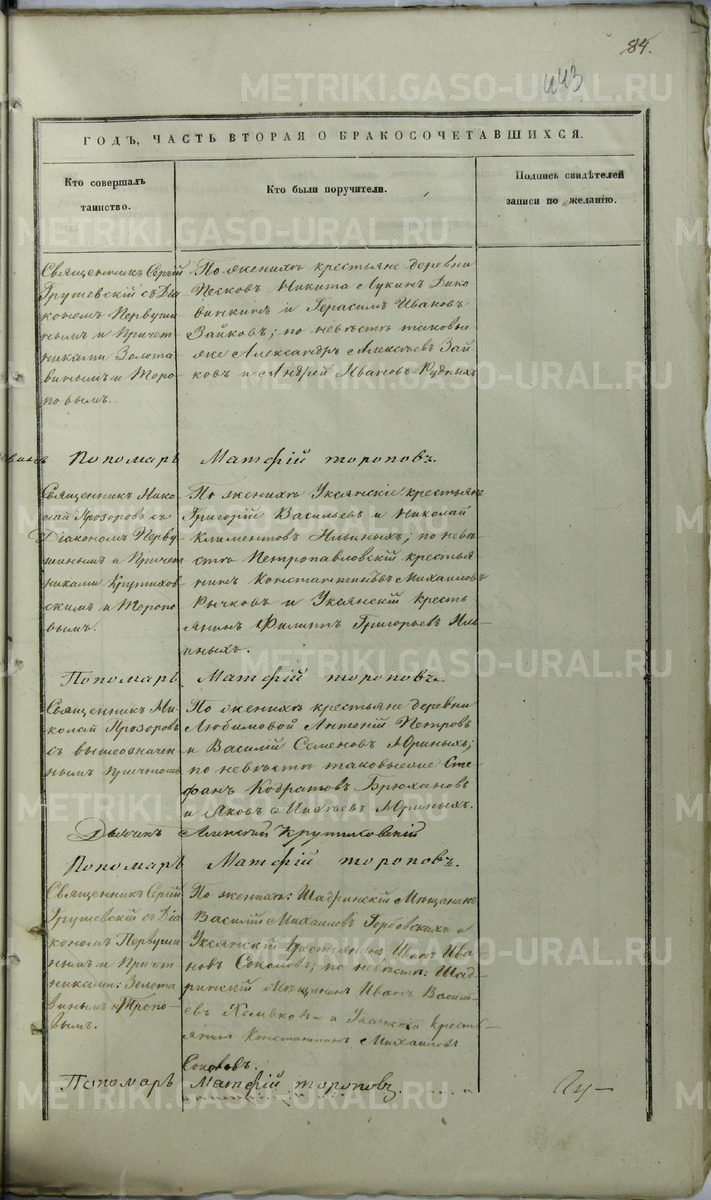 84.
443
ГОДЪ, ЧАСТЬ ВТОРАЯ О БРАКОСОЧЕТАВШИХСЯ.
Кто совершалъ
таинство.
Кто были поручители.
Подпись свидѣтелей
записи по желанію.
Священникъ Сергій
Грушевскій съ Діа
кономъ Первуши
нымъ и Причет
никами Золота
винымъ и Торо
повымъ.
По женихѣ крестьяне деревни
Песковъ Никита Лукинъ Дико
винкинъ и Герасимъ Ивановъ
Зайковъ; по невѣстѣ таковые
же Александръ Алексѣевъ Зай
ковъ и Андрей Ивановъ Рудныхъ
Пономарь Матфій Тороповъ.
Священникъ Нико
лай Прозоровъ съ
Діакономъ Перву
шинымъ и Причет
никами Крутихов
скимъ и Торопо
вымъ.
По женихѣ Уксянскіе крестьяне
Григорій Васильевъ и Николай
Климентовъ Ильиныхъ; по невѣ
стѣ Петропавловскій крестья
нинъ Константиновъ Михаиловъ
Рычковъ и Уксянскій кресть
янинъ Филиппъ Григорьевъ Иль
иныхъ.
Пономарь Матфій Тороповъ.
Священникъ Ни
колай Прозоровъ
съ вышеозначен
нымъ Причтомъ
По женихѣ крестьяне деревни
Любимовой Антоній Петровъ
и Василій Семеновъ Юриныхъ;
по невѣстѣ таковые же Сте
фанъ Кодратовъ Брюхановъ
и Яковъ Матѣевъ Юриныхъ.
Дьячекъ Алексій Крутиховскій
Пономарь Матфій Тороповъ.
Священникъ Сергій
Грушевскій съ Діа
кономъ Первуши
нымъ и Причет
никами: Золота
винымъ и Торопо
вымъ.
По женихѣ: Шадринскій Мѣщанинъ
Василій Михаиловъ Горбовскихъ и
Уксянскій крестьянинъ Ива
новъ Соколовъ; по невѣстѣ: Шад
ринскій Мѣщанинъ Иванъ Василь
евъ и Уксянскій кресть
янинъ Константинъ Михаиловъ
Соколовъ.
Пономарь Матфій Тороповъ.
METRIKI.GASO-URAL.RU
METRIKI.GASO-URAL.RU
METRIKI.GASO-URAL.RU
METRIKI.GASO-URAL.RU
METRIKI.GASO-URAL.RU
METRIKI.GASO-URAL.RU
METRIKI.GASO-URAL.RU
METRIKI.GASO-URAL.RU